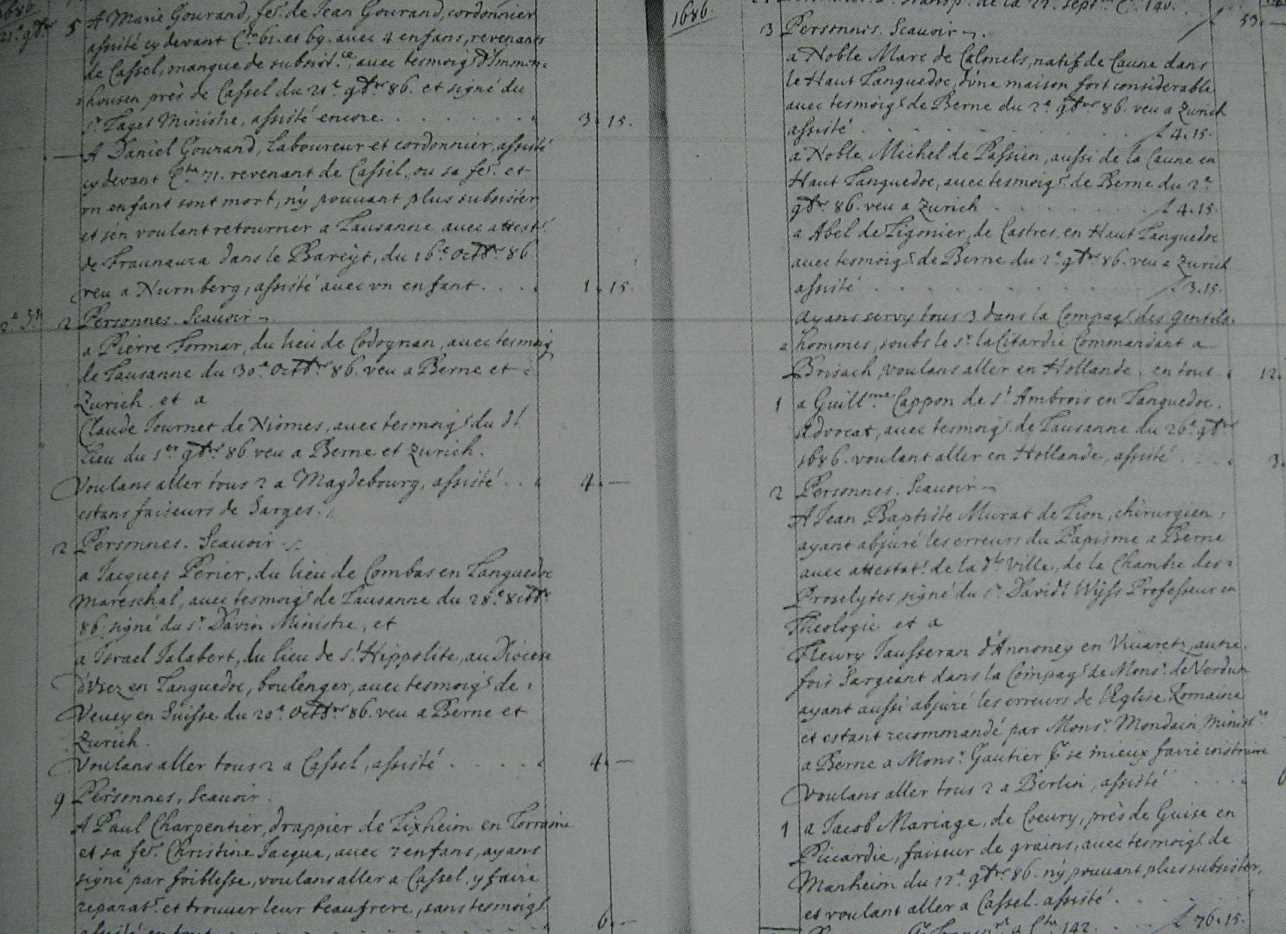 5 A Marie Gourand, feē. de Jean Gourand, cordonnier
assisté cy devant Cta 61. et 69. avec 4 enfans, revenants
de Cassel, manque de subsist.ce, avec tesmoigs d'Immen-
housen près de Cassel du 21e 9bre 86. et signé du
Sr. Paget Ministre, assisté encore 3. 15.
A Daniel Gourand, Laboureur et cordonnier, assisté
cy devant Cta 71. revenant de Cassel, ou sa feē. et
vn enfant sont mort, n'y pouvant plus subsister
et s'en voulant retourner a Lausanne avec attest.
de Fraunaura dans le Bareyt, du 16e Octbre 86
veu a Nurnberg, assisté avec vn enfant 1. 15.
2 Personnes. Scauoir
a Pierre Formar, du lieu de Codognan, avec tesmoig
de Lausanne du 30e Octbre 86. veu a Berne et
Zurich. et a
Claude Journet de Nismes, avec tesmoigs du dt
Lieu du 1er 9bre 86 veu a Berne et Zurich.
Voulans aller tous 2 a Magdebourg, assisté 4. —
estans faiseurs de Sarges.
2 Personnes. Scauoir
a Jacques Perier, du lieu de Combas en Languedoc
Mareschal, avec tesmoigs de Lausanne du 28e 8bre
86. signé du Sr. Davin Ministre, et
a Israel Jalabert, du lieu de St Hippolite, au Diocese
d'Vsez en Languedoc, boulenger, avec tesmoigs de
Vevey en Suisse du 20e Octbre 86. veu a Berne et
Zurich.
Voulans aller tous 2 a Cassel, assisté 4. —
9 Personnes, Scauoir.
A Paul Charpentier, drappier de Lixheim en Lorraine
et sa feē. Christine Jacque, avec 7 enfans, ayans
signé par foiblesse, voulans aller a Cassel, y faire
reparat. et trouver leur beaufrere, sans tesmoigs
assisté en tout 6. —
1686.
3 Personnes. Scauoir
a Noble Marc de Calmels, natif de Caune dans
le Haut Languedoc, d'une maison fort considerable
avec tesmoigs de Berne du 2e 9bre 86. veu a Zurich
assisté 4. 15.
a Noble Michel de Passien, aussi de la Caune en
Haut Languedoc, avec tesmoigs de Berne du 2e
9bre 86. veu a Zurich 4. 15.
a Abel de Ligonier, de Castres, en Haut Languedoc
avec tesmoigs de Berne du 2e 9bre 86. veu a Zurich
assisté 3. 15.
ayans servy tous 3 dans la Compag. des gentils-
hommes, soubs le Sr. la Citardie Commandant a
Brisach, voulans aller en Hollande. en tout 12.
1 a Guillme Cappon de St Ambrois en Languedoc.
Advocat, avec tesmoigs de Lausanne du 26e 9bre
1686. voulant aller en Hollande, assisté 3.
2 Personnes. Scauoir
A Jean Baptiste Murat de Lion, chirurgien,
ayant abjuré les erreurs du Papisme a Berne
avec attestat. de la dt Ville, de la Chambre des
Proselytes, signé du Sr. Davidt Wyss Professeur en
Theologie et a
Fleury Jausseran d'Annoney en Vivaretz, autre-
fois Sargeant dans la Compag. de Monsr. de Verdun
ayant aussi abjuré les erreurs de l'Eglise Romaine
et estant recommandé par Monsr. Mondain Ministre
a Berne a Monsr. Gautier pr se mieux faire instruire
voulans aller tous 2 a Berlin, assisté
1 a Jacob Mariage, de Coeury, près de Guise en
Picardie, faiseur de grains, avec tesmoigs de
Manheim du 12e 9bre 86. n'y pouvant plus subsister,
et voulant aller a Cassel. assisté
76. 15.